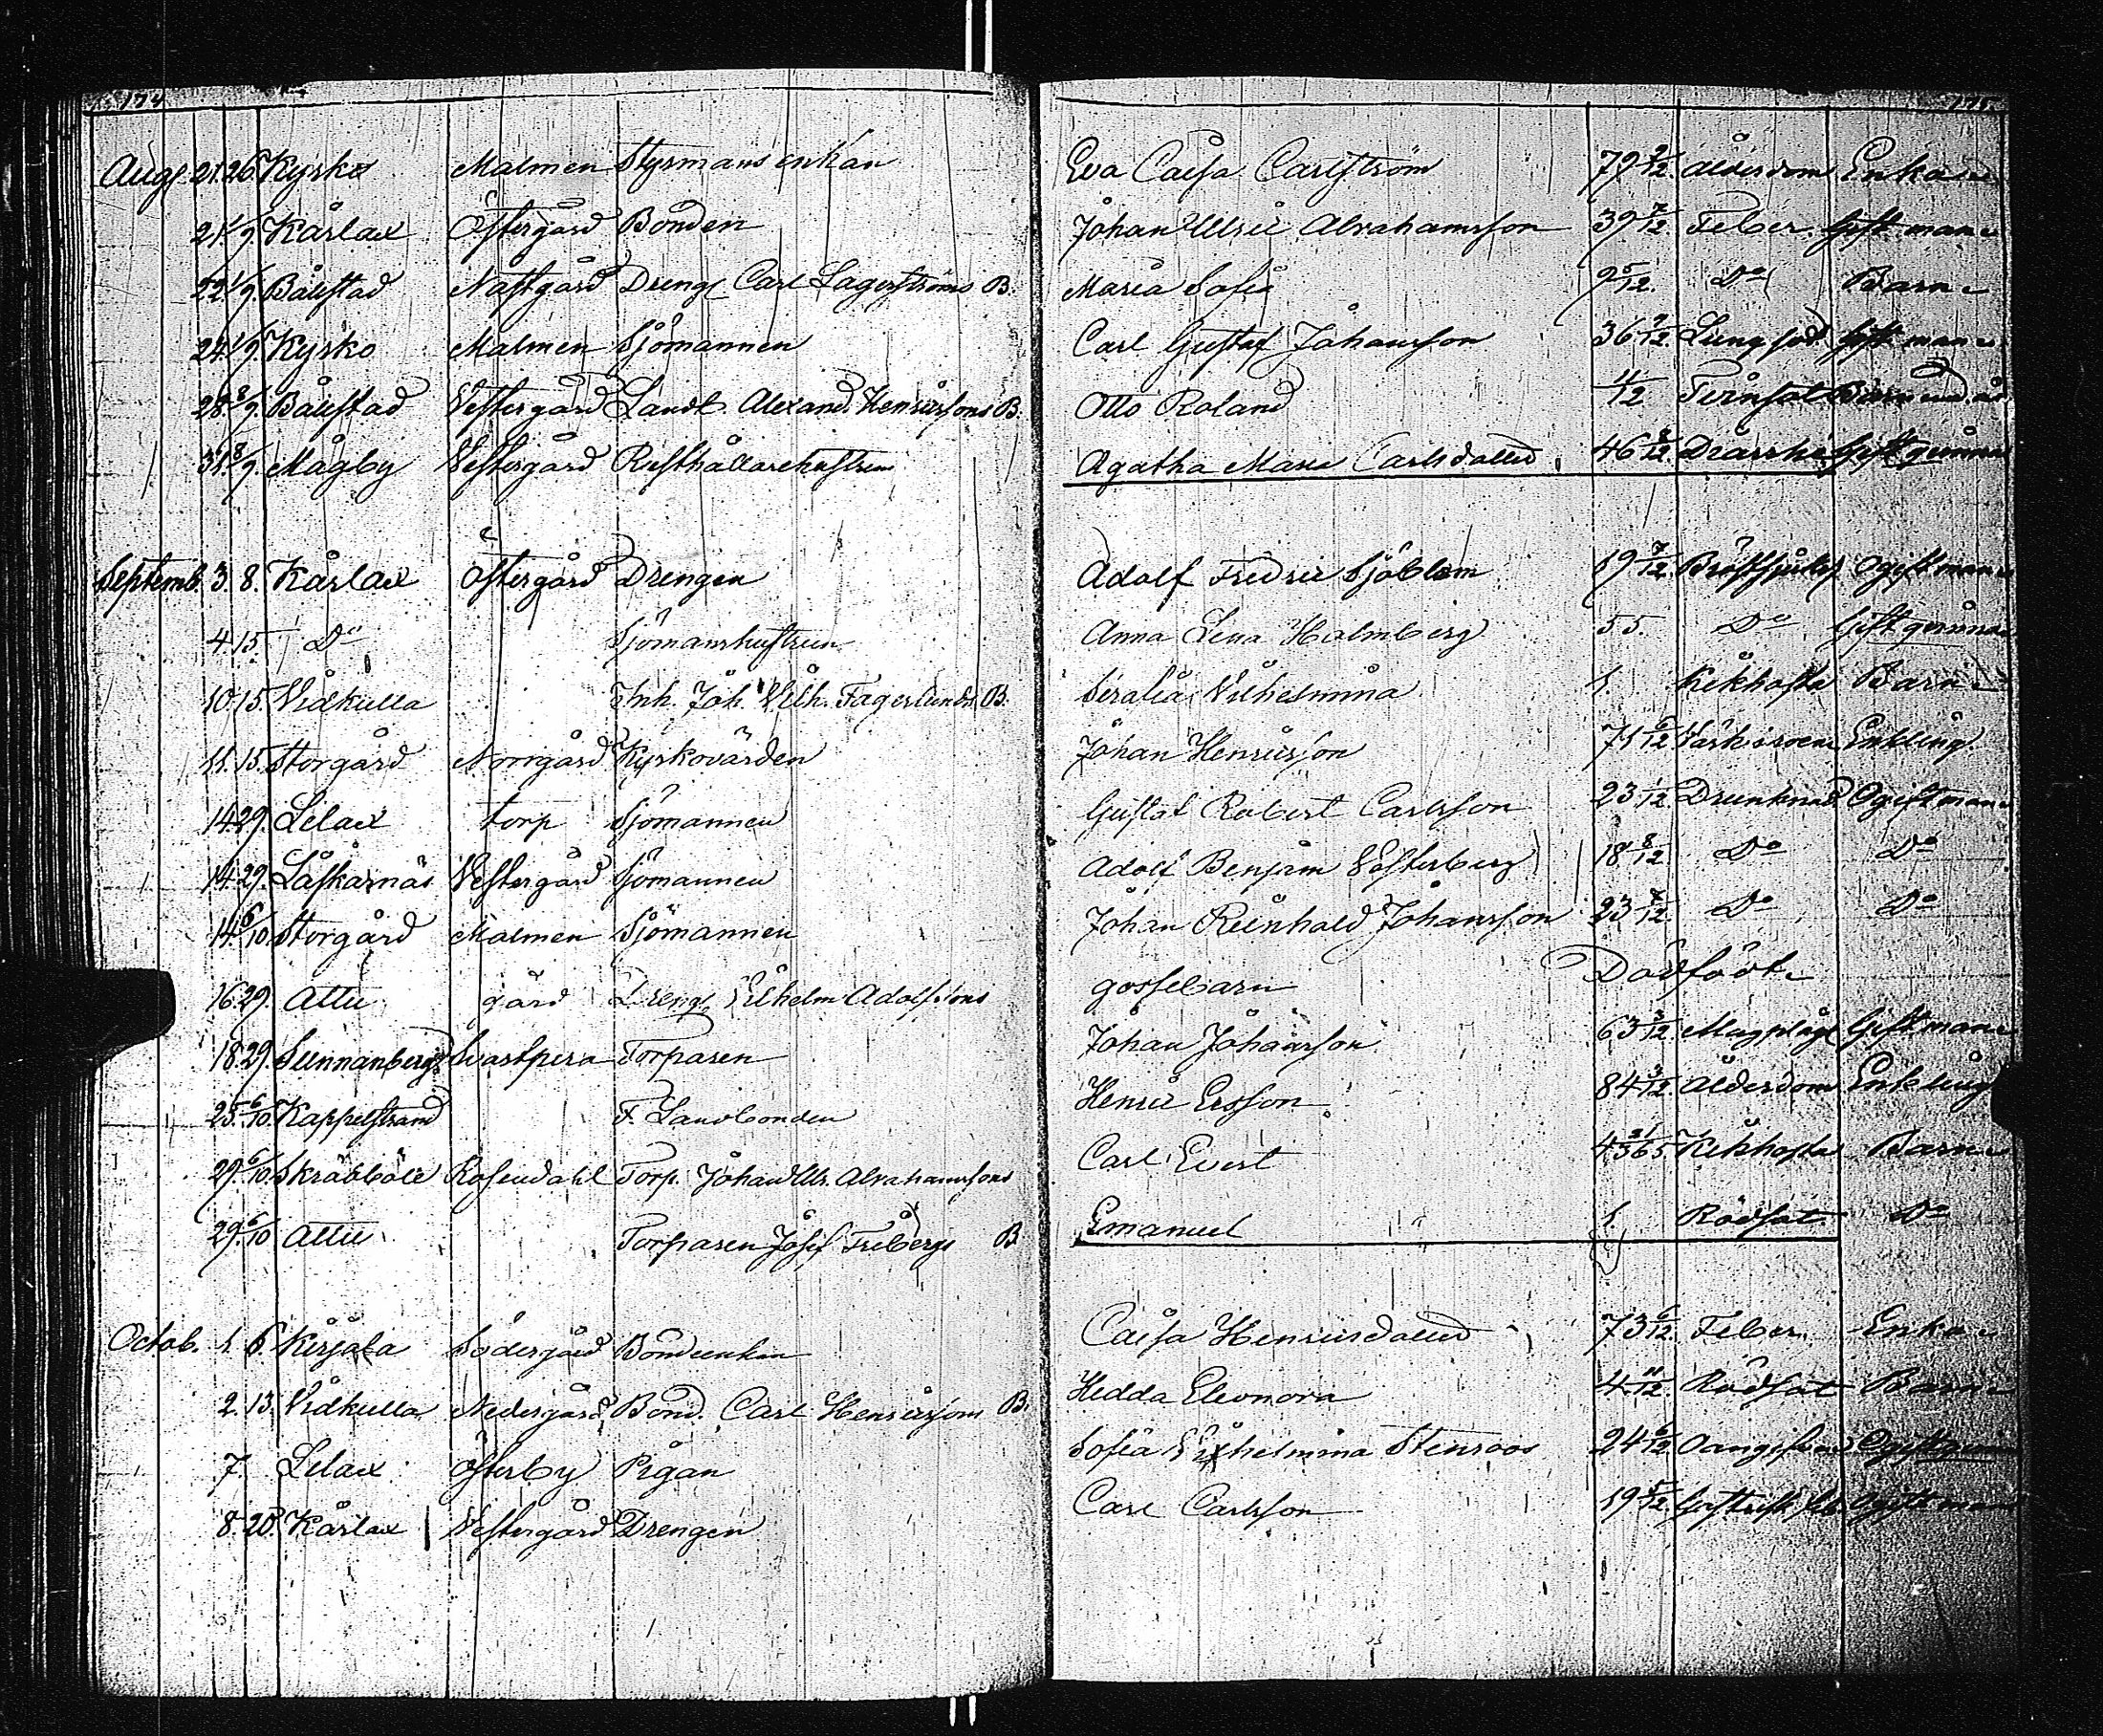 174
175
Aug. 21. 26. Kyrko Malmen Styrmansenkan Eva Caisa Carlström 79 9/12. Ålderdom Enka
21 1/9. Kårlax Östergård Bonden Johan Ulric Abrahamsson 39 7/12. Feber. Gift man
22 1/9. Båustad Nästgård Dreng. Carl Lagerströms B. Maria Sofia 9 5/12. Do Barn
24 1/9. Kyrko Malmen Sjömannen Carl Gustaf Johansson 36 9/12. Lungsot Gift man
28 8/9. Båustad Vestergård Landb. Alexand. Henricsons B. Otto Roland 4/12 Tvinsot Barn
31 8/9. Mågby Vestergård Rusthållarehustrun Agatha Maria Carlsdotter 46 8/12. Diarrhé Gift qvinna
Septemb. 3. 8. Kårlax Östergård Drengen Adolf Fredric Sjöblom 19 7/12. Bröstsjukd. Ogift man
4. 15. Do Sjömanshustrun Anna Lena Holmberg 55. Do Gift qvinna
10. 15. Vidkulla Inh. Joh. Vilh. Fagerlunds B. Serafia Vilhelmina 1. Kikhosta Barn
11. 15. Storgård Norrgård Kyrkovärden Johan Henricson 71 6/12 Enkling
14. 29. Lilax torp Sjömannen Gustaf Robert Carlsson 23 1/12. Drunknad Ogift man
14. 29. Låskarnäs Vestergård Sjömannen Adolf Benjam Vesterberg 18 8/12. Do Do
14. 6/10. Storgård Malmen Sjömannen Johan Reinhold Johansson 23 7/12. Do Do
16. 29. Attu gård Dreng. Vilhelm Adolfsons gossebarn Dödfödt
18. 29. Sunnanberg Svartspira Torparen Johan Johansson 63 3/12. Magplåga Gift man
25. 6/10. Kappelstrand F. Landbonden Henric Ersson 84 3/12. Ålderdom Enkling
29. 6/10. Skräbböle Rosendahl Torp. Johan Ulr. Abrahamsons Carl Evert 4 21/365. Kikhosta Barn
29. 6/10 Attu Torparen Josef Fribergs B Emanuel 1. Rödsot Do
Octob. 1. 6. Kirjala Södergård Bondeenkan Caisa Henricsdotter 73 6/12. Feber. Enka
2. 13. Vidkulla Nedergård Bond. Carl Henricsons B. Hedda Eleonora 4 11/12. Rödsot Barn
7. Lilax Österby Pigan Sofia Vilhelmina Stenroos 24 6/12. Oangifven Ogift qvin
8. 20. Kårlax Vestergård Drengen Carl Carlsson 19 5/12. Gastrisk feb. Ogift man